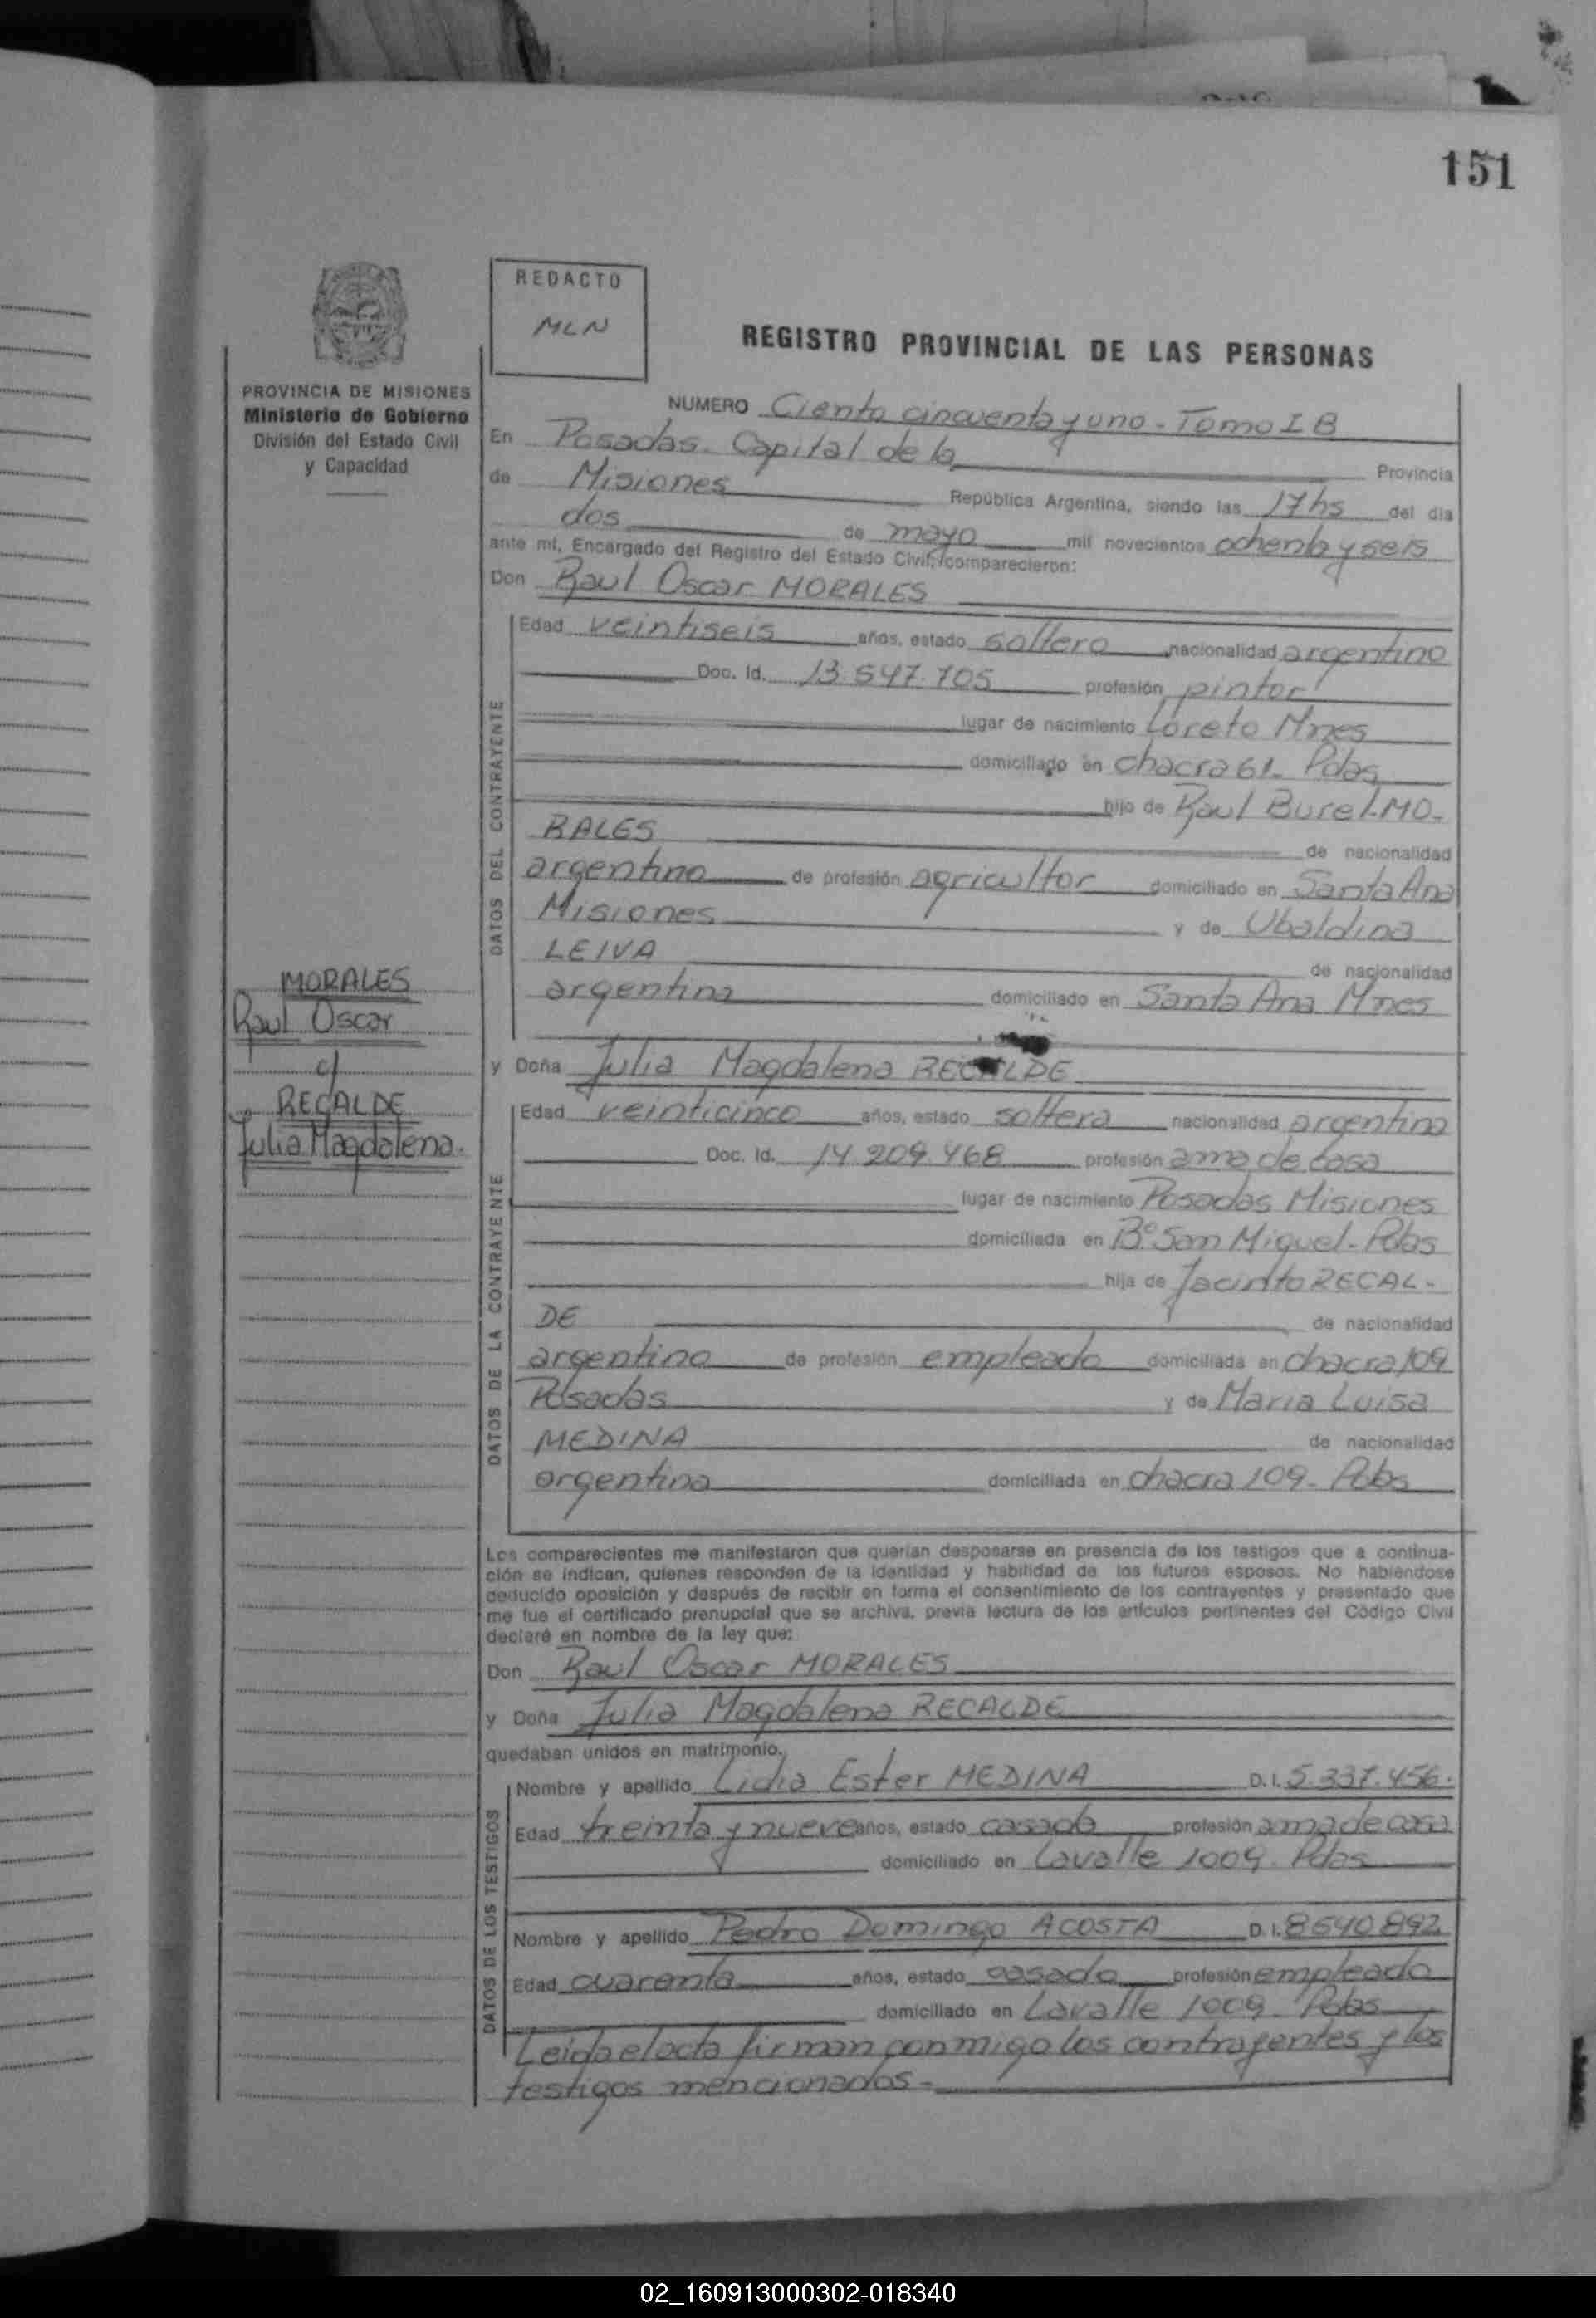 151
REDACTO
MLN
REGISTRO PROVINCIAL DE LAS PERSONAS
PROVINCIA DE MISIONES
Ministerio de Gobierno
División del Estado Civil
y Capacidad
NUMERO Ciento cincuenta y uno - Tomo I B
En Posadas. Capital de la Provincia
de Misiones República Argentina, siendo las 17 hs del dia
dos de mayo mil novecientos ochenta y seis
ante mí, Encargado del Registro del Estado Civil, comparecieron:
Don Raul Oscar MORALES
DATOS DEL CONTRAYENTE
Edad veintiseis años, estado soltero nacionalidad argentino
Doc. Id. 13.547.705 profesión pintor
lugar de nacimiento Loreto Mnes
domiciliado en chacra 61- Pdas
hijo de Raul Burel-MO-
RALES de nacionalidad
argentino de profesión agricultor domiciliado en Santa Ana
Misiones y de Ubaldina
LEIVA de nacionalidad
argentina domiciliado en Santa Ana Mnes
MORALES
Raul Oscar
c/
RECALDE
Julia Magdalena.
y Doña Julia Magdalena RECALDE
DATOS DE LA CONTRAYENTE
Edad veinticinco años, estado soltera nacionalidad argentina
Doc. Id. 14.209.468 profesión ama de casa
lugar de nacimiento Posadas Misiones
domiciliada en Bº San Miguel- Pdas
hija de Jacinto RECAL-
DE de nacionalidad
argentino de profesión empleado domiciliada en chacra 109
Posadas y de Maria Luisa
MEDINA de nacionalidad
argentina domiciliada en chacra 109- Pdas
Los comparecientes me manifestaron que querían desposarse en presencia de los testigos que a continua-
ción se indican, quienes responden de la identidad y habilidad de los futuros esposos. No habiéndose
deducido oposición y después de recibir en forma el consentimiento de los contrayentes y presentado que
me fue el certificado prenupcial que se archiva, previa lectura de los artículos pertinentes del Código Civil
declaré en nombre de la ley que:
Don Raul Oscar MORALES
y Doña Julia Magdalena RECALDE
quedaban unidos en matrimonio.
DATOS DE LOS TESTIGOS
Nombre y apellido Lidia Ester MEDINA D.I. 5.337.456.
Edad treinta y nueve años, estado casada profesión ama de casa
domiciliado en Lavalle 1009. Pdas
Nombre y apellido Pedro Domingo ACOSTA D.I. 8540.892
Edad cuarenta años, estado casado profesión empleado
domiciliado en Lavalle 1009. Pdas
Leida el acta firman conmigo los contrayentes y los
testigos mencionados-
02_160913000302-018340